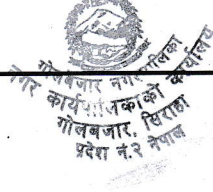 गोलबजार नगरपालिका
नगर कार्यपालिकाको कार्यालय
गोलबजार, सिराहा
प्रदेश नं.२ नेपाल